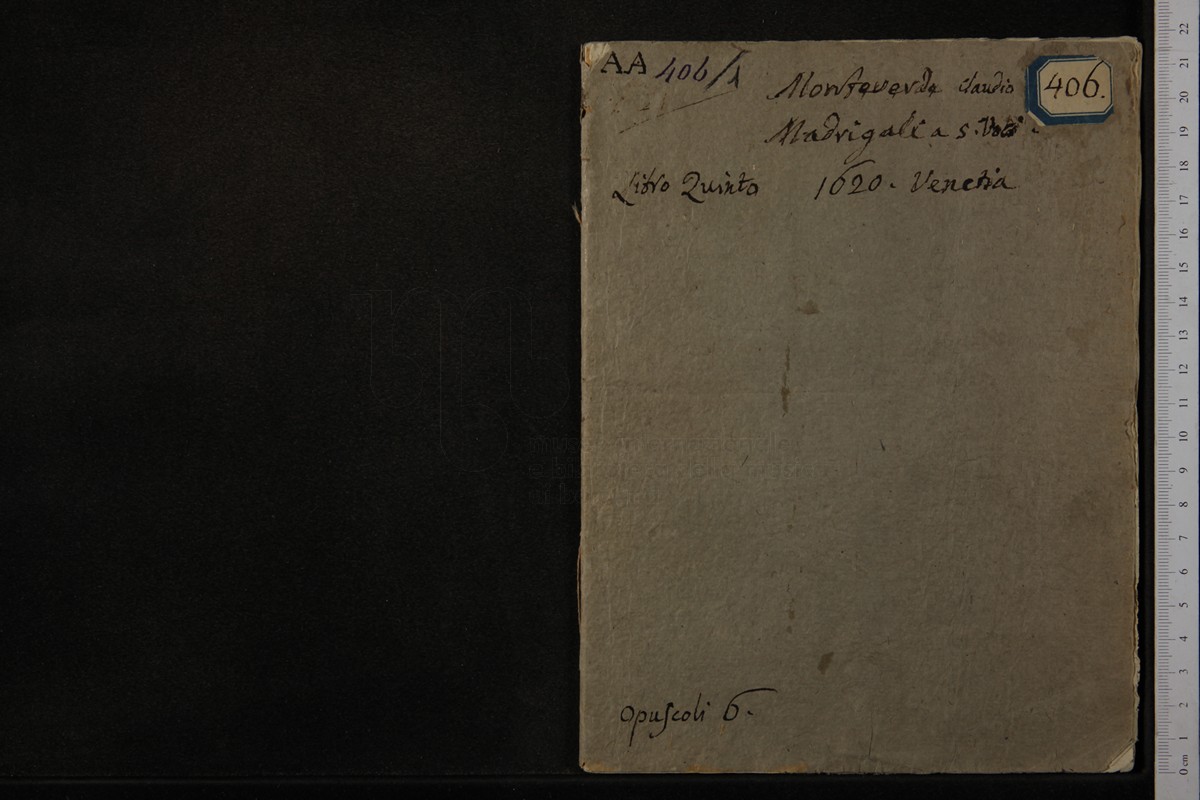 AA 406/1
406.
Monteverde Claudio
Madrigali a 5. Voci.
Libro Quinto 1620. Venetia
Opuscoli 6.
22
21
20
19
18
17
16
15
14
13
12
11
10
9
8
7
6
5
4
3
2
1
0 cm